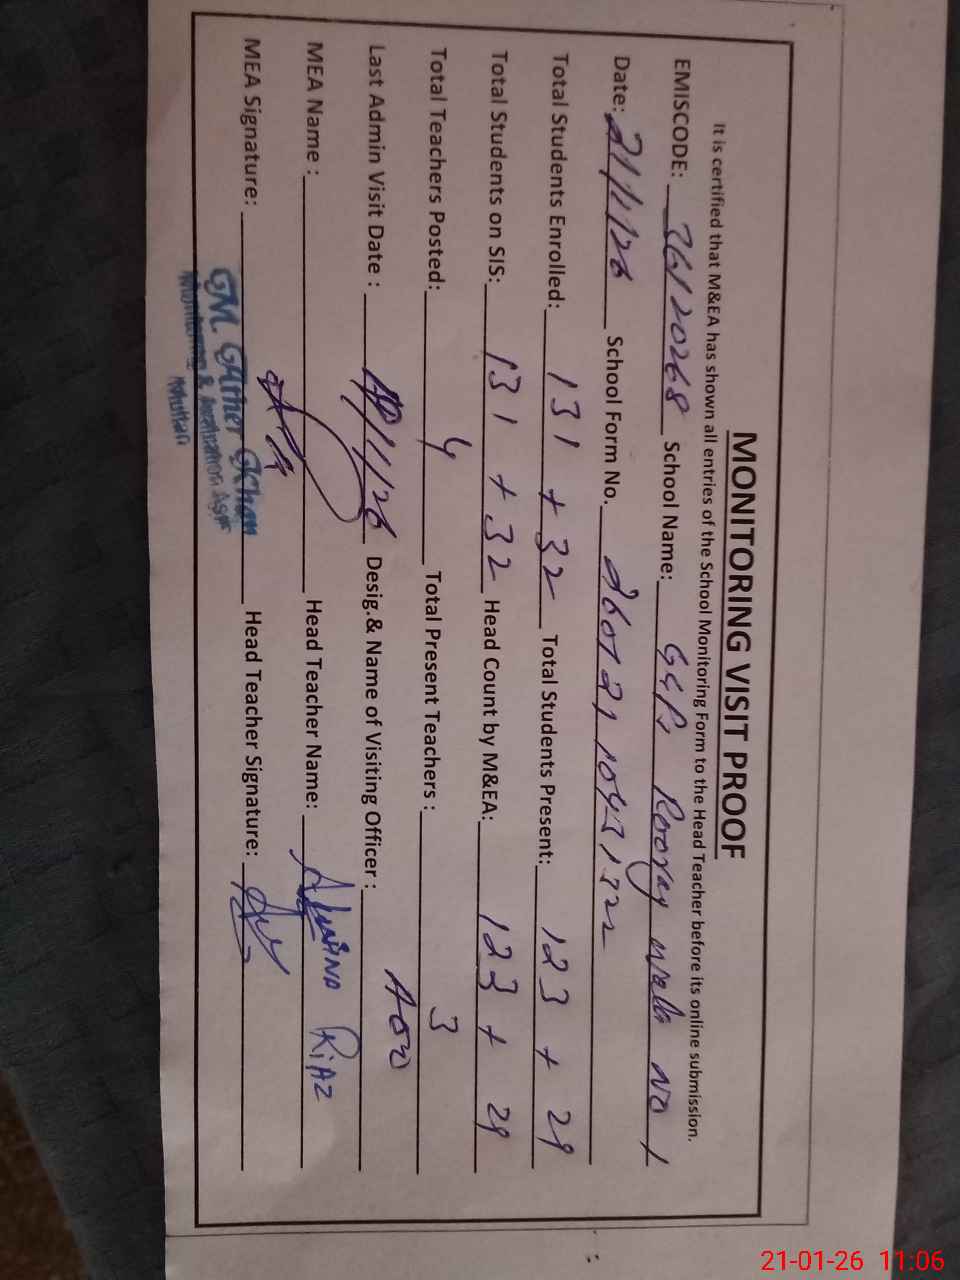 MONITORING VISIT PROOF
It is certified that M&EA has shown all entries of the School Monitoring Form to the Head Teacher before its online submission.
EMISCODE: 36120268 School Name: GGPS Rooray wala No 1
Date: 21/1/26 School Form No. 26012110431322
Total Students Enrolled: 131 + 32 Total Students Present: 123 + 29
Total Students on SIS: 131 + 32 Head Count by M&EA: 123 + 29
Total Teachers Posted: 4 Total Present Teachers : 3
Last Admin Visit Date : /1/26 Desig.& Name of Visiting Officer :
MEA Name : Head Teacher Name: RIAZ
MEA Signature: Head Teacher Signature:
Khan
Monitoring &
Multan
21-01-26 11:06